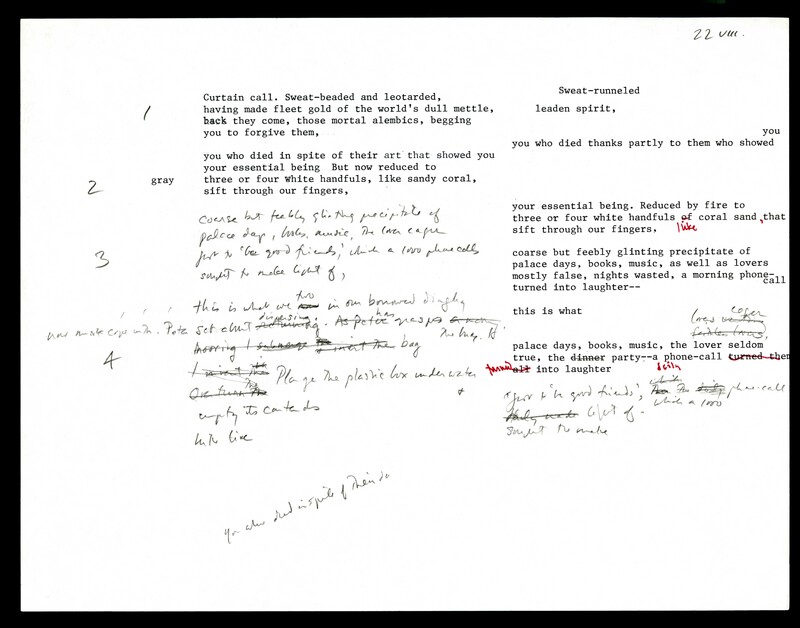 22 VIII.
1
Curtain call. Sweat-beaded and leotarded,
having made fleet gold of the world's dull mettle,
back they come, those mortal alembics, begging
you to forgive them,
2
gray
you who died in spite of their art that showed you
your essential being But now reduced to
three or four White handfuls, like sandy coral,
sift through our fingers,
3
coarse but feebly glinting precipitate of
palace days, books, music, the lover eager
just to 'be good friends,' which a 1000 phone calls
sought to make light of,
4
this is what we two in our borrowed dinghy
set about dispersing. As Peter grasps
mooring I the bag
Plunge the plastic box underwater
empty its contents
into
you who died in spite of their
Sweat-runneled
leaden spirit,
you
you who died thanks partly to them who showed
your essential being. Reduced by fire to
three or four white handfuls of coral sand, that
like
sift through our fingers,
coarse but feebly glinting precipitate of
palace days, books, music, as well as lovers
mostly false, nights wasted, a morning phone-
call
turned into laughter--
this is what
eager
palace days, books, music, the lover seldom
true, the dinner party--a phone-call turned them
turned all into laughter
'just to be good friends', which phone-call
which a 1000
light of-
sought to make